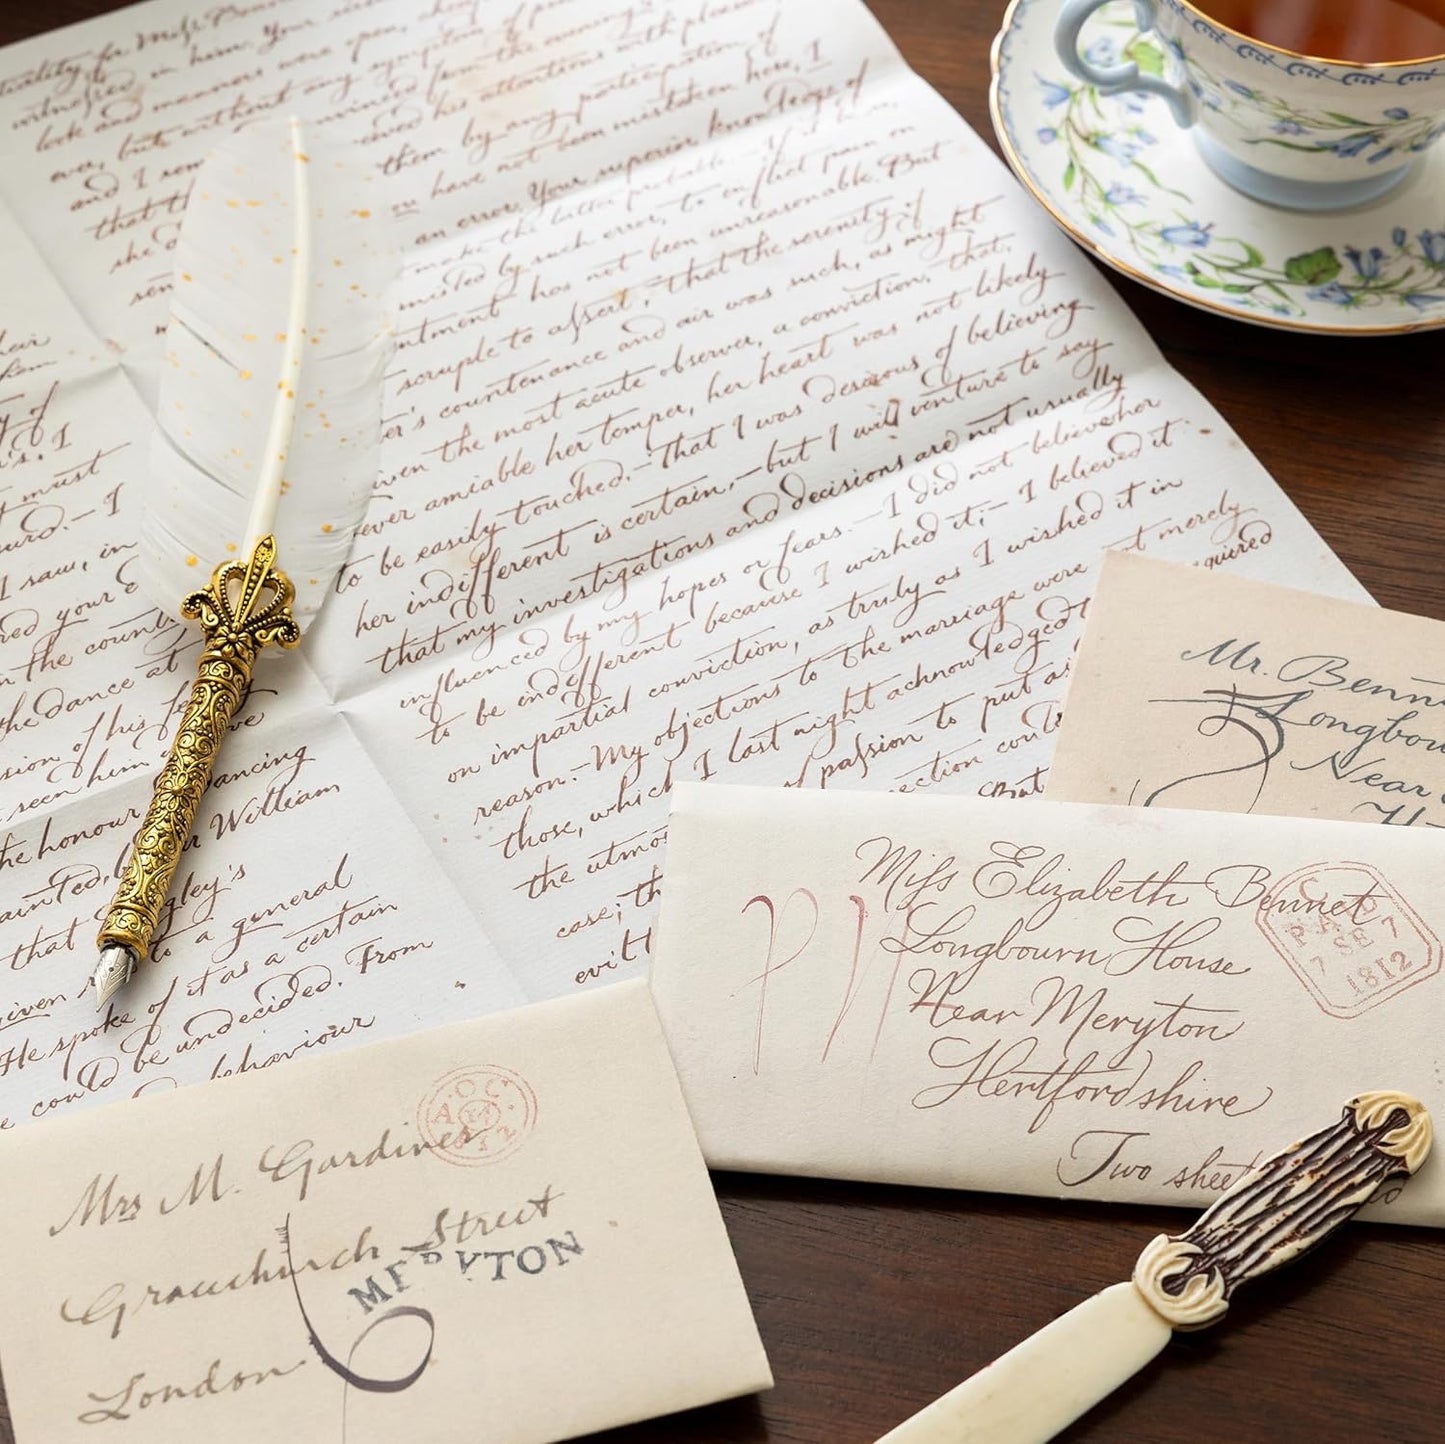 tiality for Miss Benn
witnessed in him. Your sis
look and manners were open, che
ever, but without any symptom of p
and I rem
that th
she d
sen
vinced from the evening's
ceived his attentions with pleasure
them by any participation of
on have not been mistaken here, I
an error. Your superior knowledge of
make the latter probable. - If it be so,
misled by such error, to inflict pain on
ntment has not been unreasonable. But
scruple to assert, that the serenity of
er's countenance and air was such, as might
given the most acute observer, a conviction, that,
ever amiable her temper, her heart was not likely
to be easily touched. - That I was desirous of believing
her indifferent is certain, - but I will venture to say
that my investigations and decisions are not usually
influenced by my hopes or fears. - I did not believe her
to be indifferent because I wished it; - I believed it
on impartial conviction, as truly as I wished it in
reason. - My objections to the marriage were not merely
those, which I last night acknowledged t
quired
the utmos
of passion to put as
case; th
ection coul
evil
But
heir
them
y of
's, I
t must
surd. - I
I saw, in
red your
n the count
the dance at
sion of his fe
seen him
ve
the honour
dancing
ainted, b
r William
that
gley's
given
to a general
He spoke of it as a certain
could be undecided. From
e cou
behaviour
Mr. Benn
Longbou
Near
H
P
Miss Elizabeth Bennet
Longbourn House
Near Meryton
Hertfordshire
Two sheet
PAID
7 SE 7
1812
Mrs M. Gardiner
Gracechurch Street
London
A.OC.
14
12
MERYTON
6